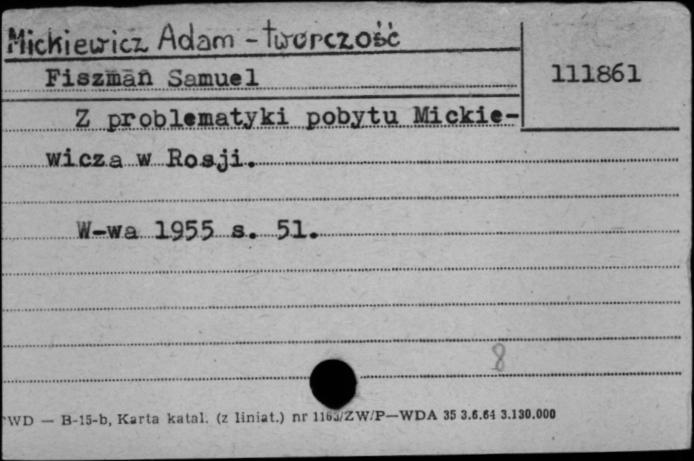 Mickiewicz Adam - twórczość
Fiszman Samuel
111861
Z problematyki pobytu Mickie-
wicza w Rosji.
W-wa 1955 s. 51.
8
WD — B-15-b, Karta katal. (z liniat.) nr 1163/ZW/P—WDA 35 3.6.64 3.130.000